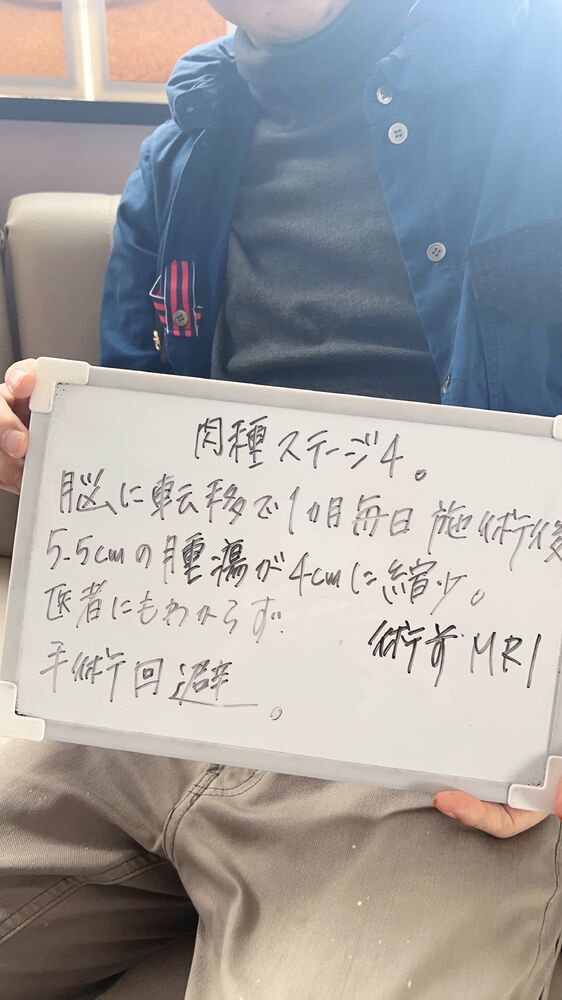 肉種ステージ4。
脳に転移で1ヵ月毎日施術後
5.5cmの腫瘍が4cmに縮少。
医者にもわからず
術前MRI
手術回避。